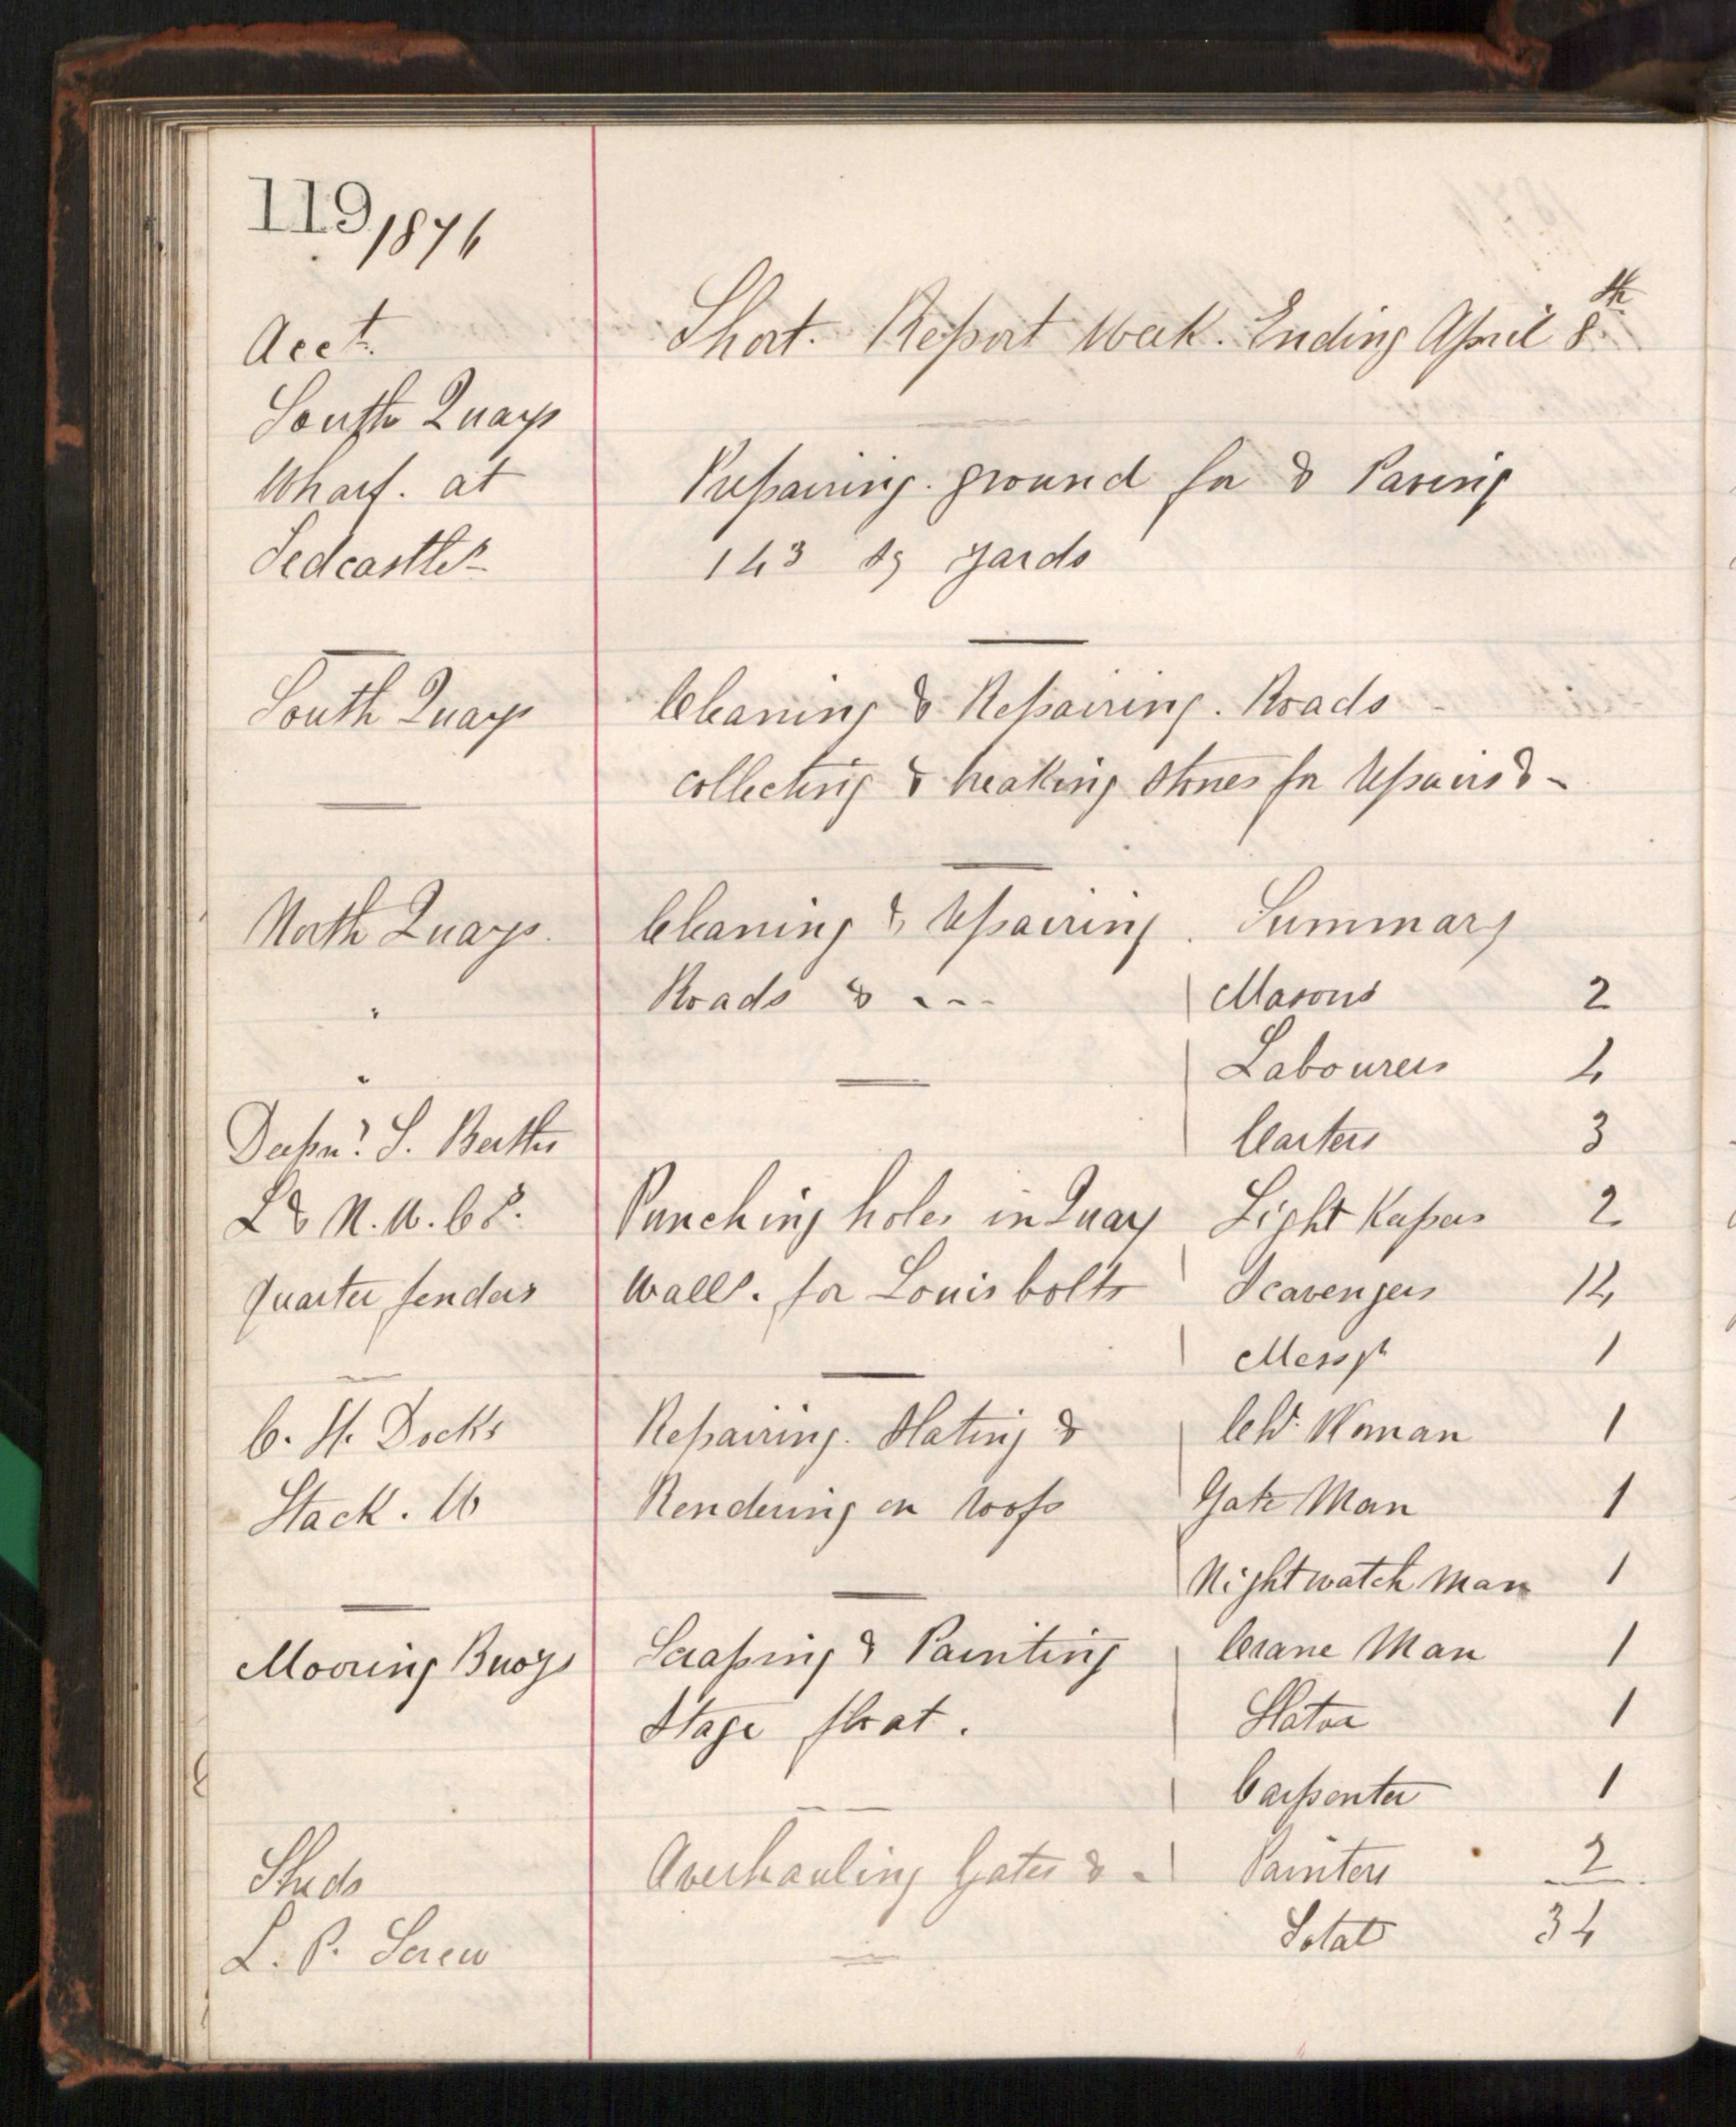 119 1876
Acct. Short. Report Week. Ending April 8th
South Quays
Wharf. at Preparing. ground for & Paving
Tedcastles 143 sq yards
South Quays Cleaning & Repairing. Roads
collecting & breaking stones for repairs & -
North Quays. Cleaning & repairing. Summary
" Roads & --- Masons 2
" Labourers 4
Deepn? S. Berths Carters 3
L & N. W. Co. Punching holes in Quay Light Keepers 2
quarter fenders Walls. for Louis bolts Scavengers 14
Messr 1
C. H. Docks Repairing. Slating & Cl Woman 1
Stack. Rendering on roofs Gate Man 1
Nightwatch Man 1
Mooring Buoys Scraping & Painting Crane Man 1
Stage float. Slator 1
Carpenter 1
Sheds Overhauling Gates & - Painters 2
L. P. Screw Total 34